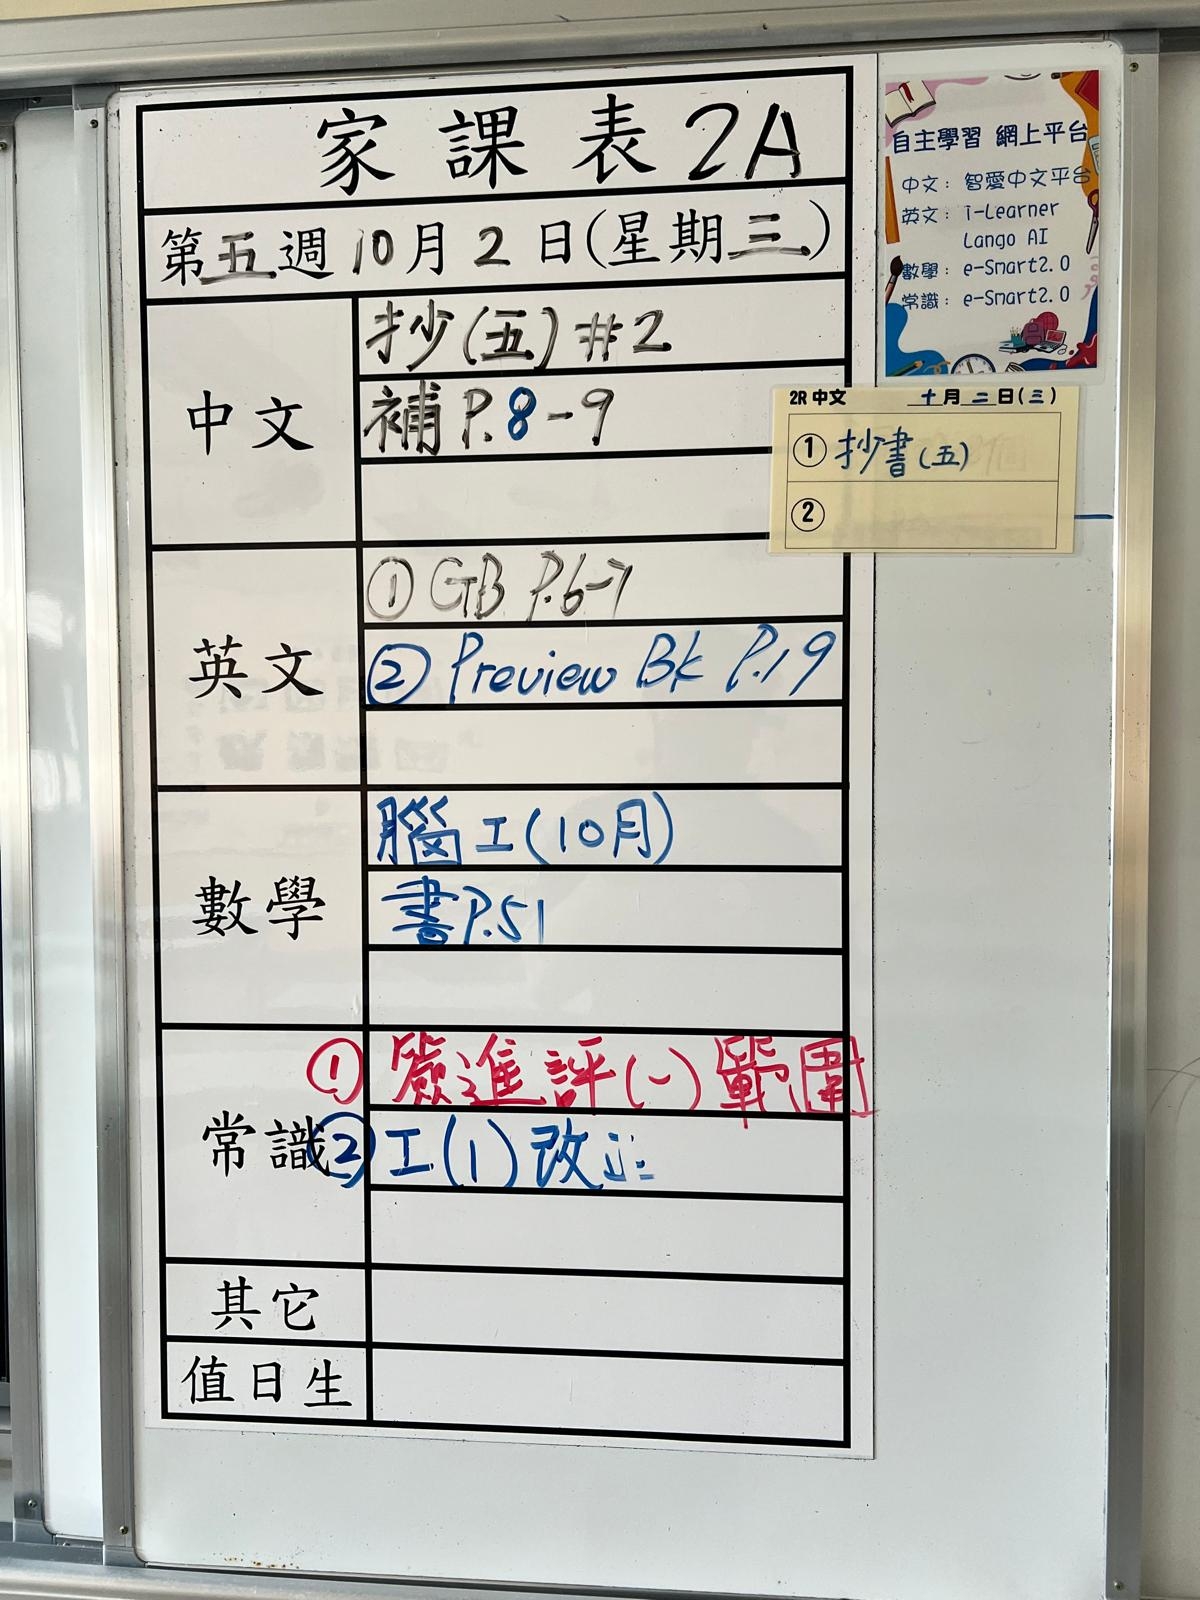 家課表 2A
第五週10月2日(星期三)
中文
抄(五)#2
補P.8-9
英文
① GB P.6-7
② Preview Bk P.19
數學
腦工(10月)
書P.51
常識
① 簽進評(一)範圍
② 工(1)改正
其它
值日生
自主學習 網上平台
中文: 智愛中文平台
英文: i-Learner
Lango AI
數學: e-Smart2.0
常識: e-Smart2.0
2R 中文 十月二日(三)
① 抄書(五)
②